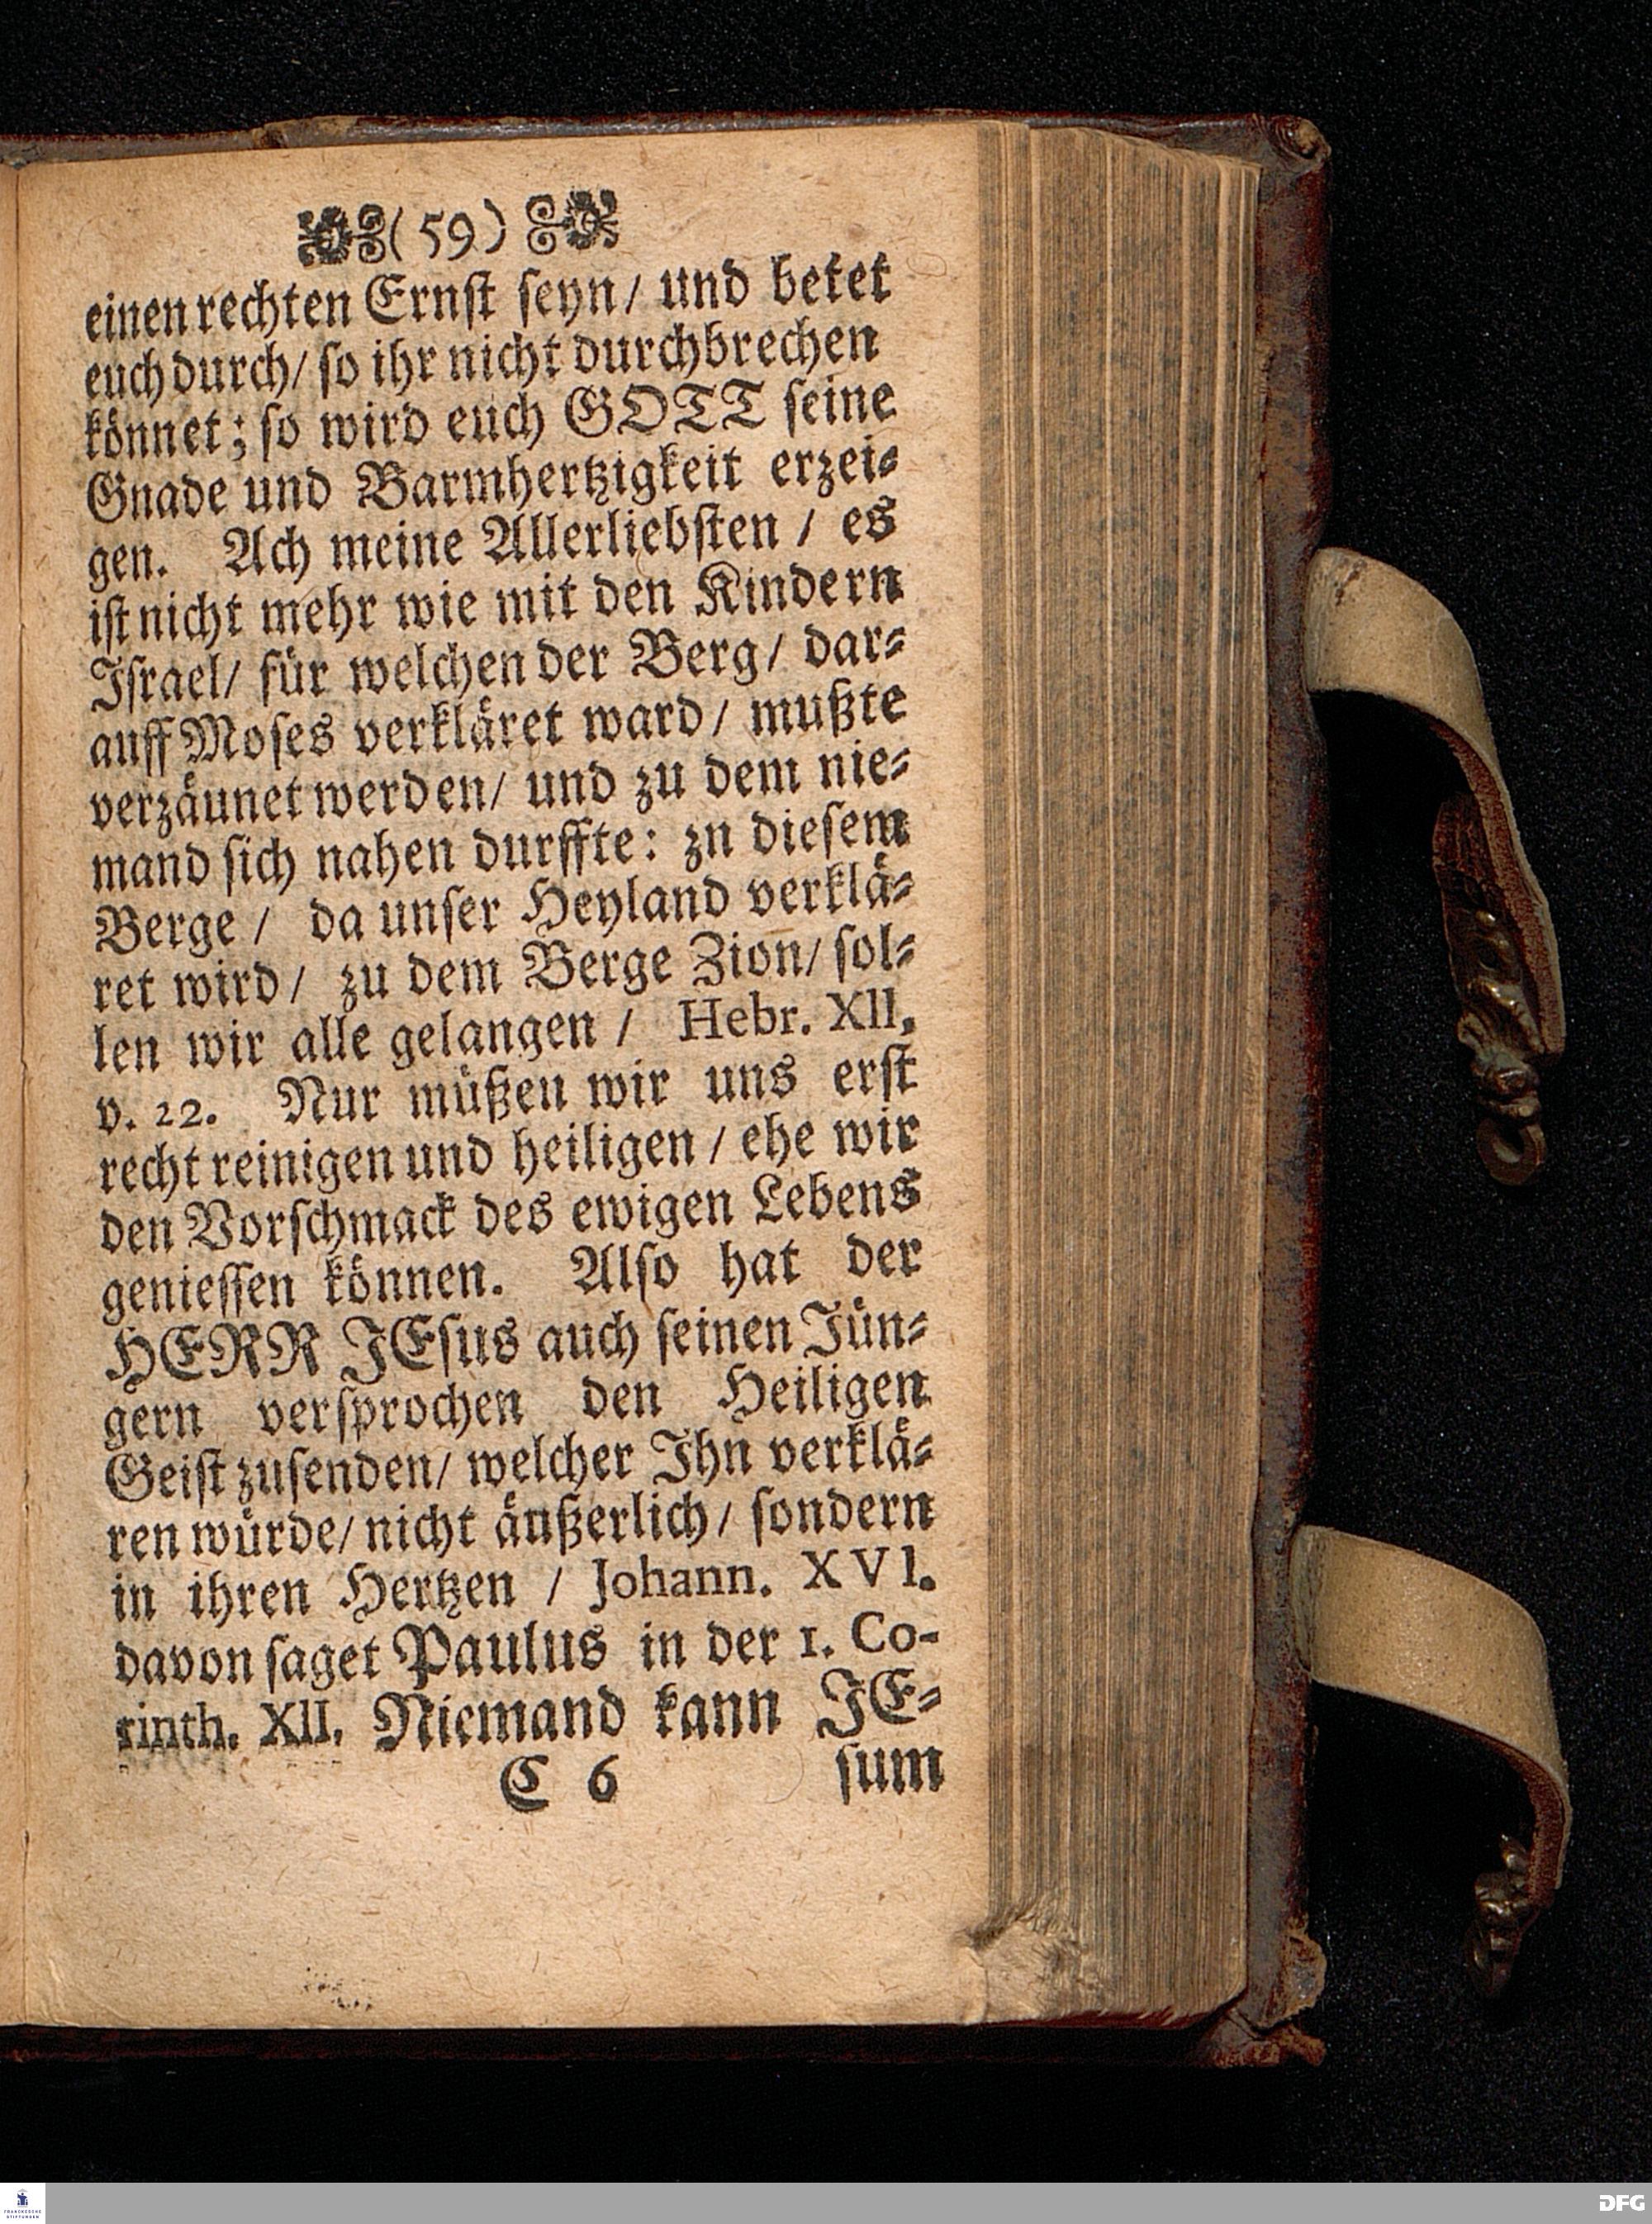 (59)
einen rechten Ernſt ſeyn/ und betet
euch durch/ ſo ihr nicht durchbrechen
könnet; ſo wird euch GOTT ſeine
Gnade und Barmhertzigkeit erzei⸗
gen. Ach meine Allerliebſten / es
iſt nicht mehr wie mit den Kindern
Iſrael/ für welchen der Berg/ dar⸗
auff Moſes verkläret ward/ mußte
verzäunet werden/ und zu dem nie⸗
mand ſich nahen durffte: zn dieſem
Berge / da unſer Heyland verklä⸗
ret wird/ zu dem Berge Zion/ ſol⸗
len wir alle gelangen / Hebr. XII.
v. 22. Nur müßen wir uns erſt
recht reinigen und heiligen / ehe wir
den Vorſchmack des ewigen Lebens
genieſſen können. Alſo hat der
HERR JEſus auch ſeinen Jün⸗
gern verſprochen den Heiligen
Geiſt zuſenden/ welcher Ihn verklä⸗
ren würde/ nicht äußerlich/ ſondern
in ihren Hertzen / Johann. XVI.
davon ſaget Paulus in der 1. Co-
rinth. XII. Niemand kann JE⸗
C 6 ſum
FRANCKESCHE
STIFTUNGEN
DFG